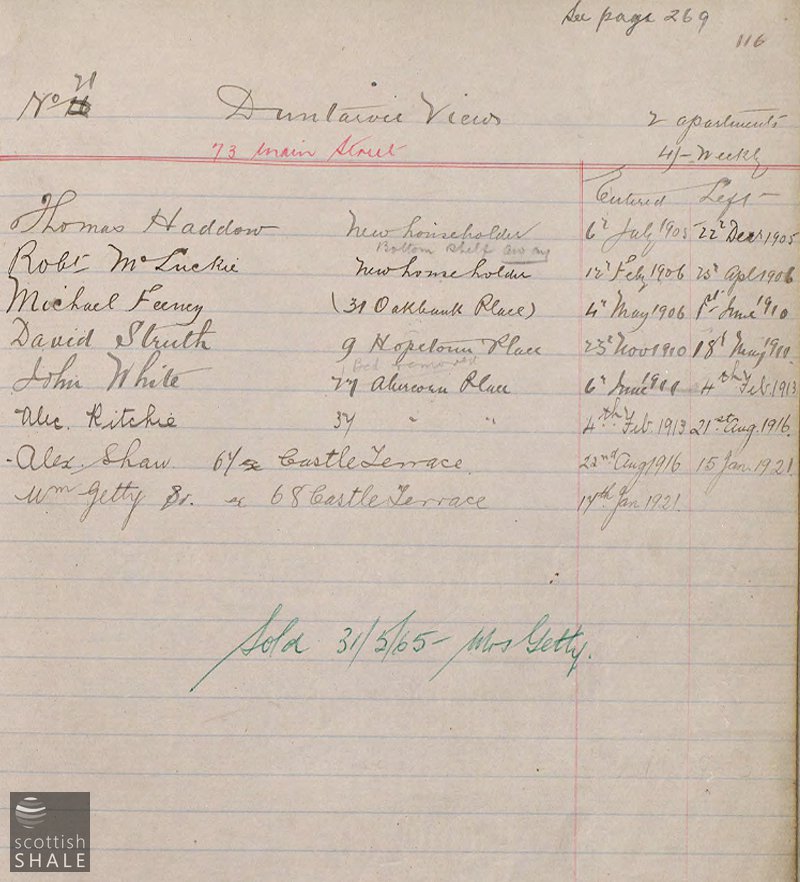 See page 269
116
No 71
Duntarvie Views
2 apartments
73 Main Street
4/- Weekly
Entered Left
Thomas Haddow New householder 6th July 1905 22d Decr 1905
Bottom shelf away
Robt McLuckie New householder 12th Feby 1906 25th Apl 1906
Michael Feeney (31 Oakbank Place) 4th May 1906 1st June 1910
David Struth 9 Hopetoun Place 25th Nov 1910 18th May 1911
1 Bed removed
John White 77 Abercorn Place 6th June 1911 4th Feb. 1913
Alec. Ritchie 37 " " 4th Feb. 1913 21st Aug. 1916.
Alex. Shaw. 67 ex Castle Terrace. 22nd Aug 1916 15 Jan. 1921.
Wm Getty Sr. ex 68 Castle Terrace 17th Jan 1921.
Sold 31/5/65 - Mrs Getty.
scottish
SHALE